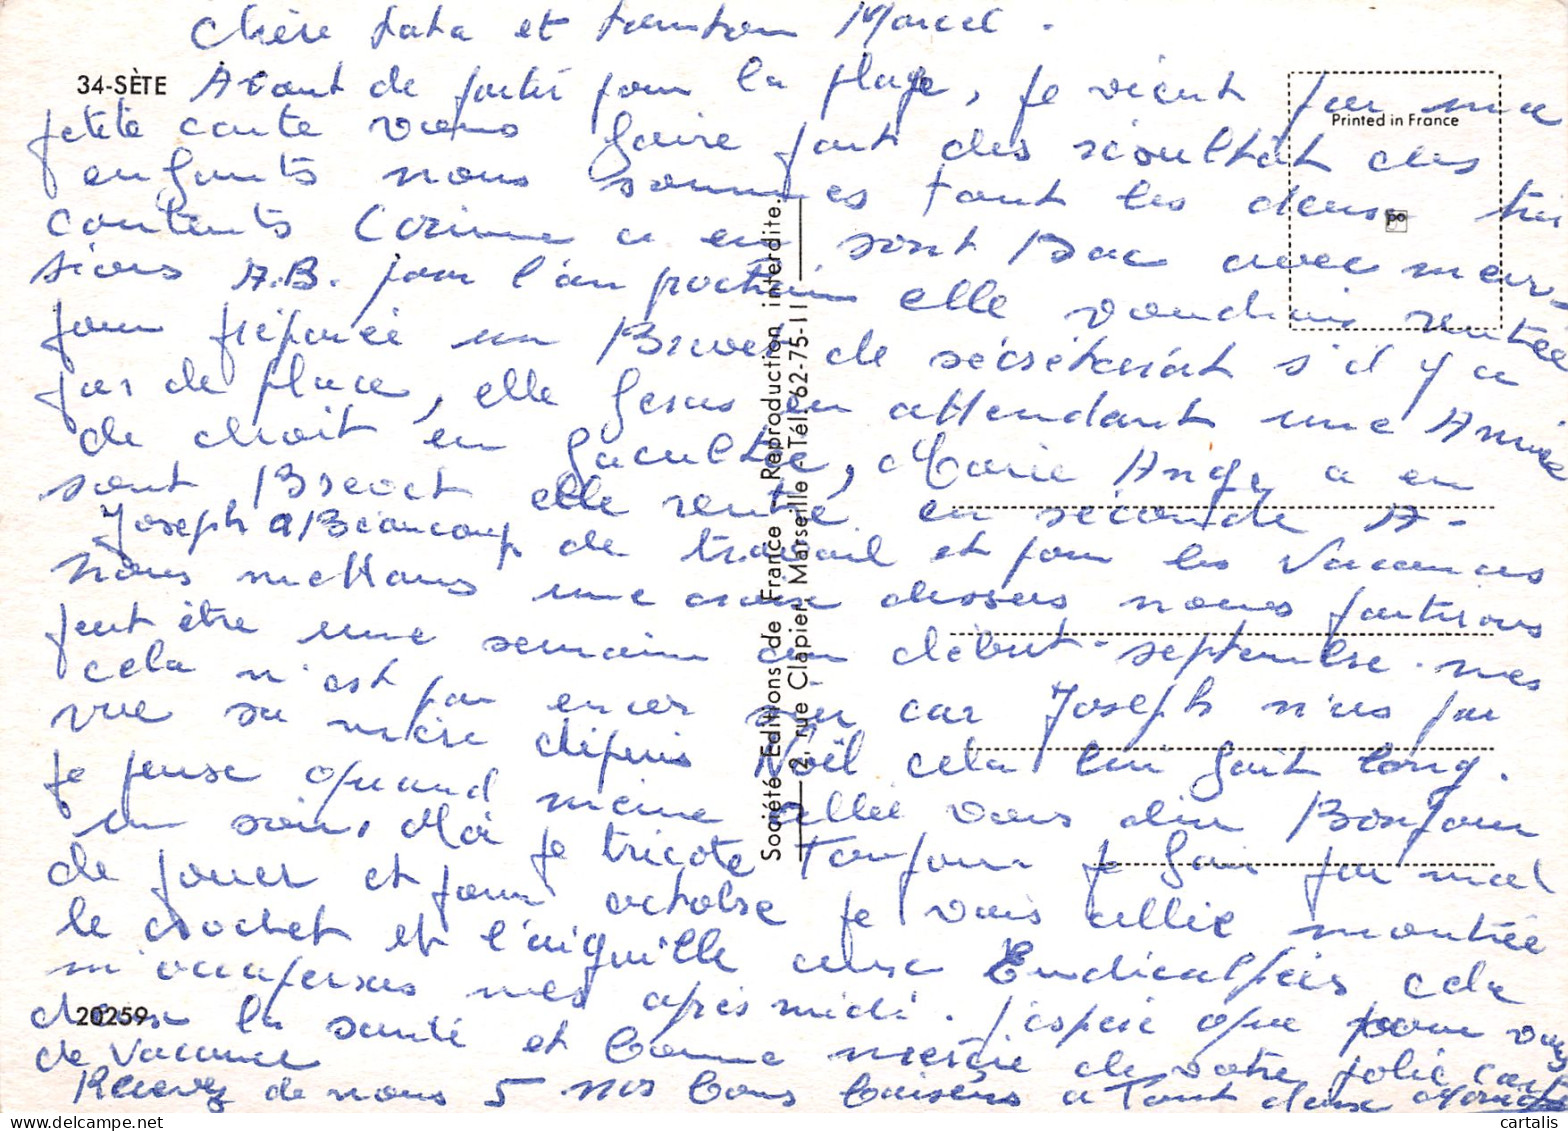 Chère tata et tonton Marcel.
34-SÈTE
Avant de partir pour la plage, je vient par ma
Printed in France
petite carte vous faire part des résultat des
enfants nous sommes tout les deux très
contents Corinne a eu sont Bac avec men-
sions A.B. pour l'an prochain elle voudrais rentrée
pour préparée un Brevet de secrétariat s'il y a
pas de place, elle feras en attendant une Année
de droit en faculté, Marie Ange a eu
sont Brevet elle rentre en seconde A-
Joseph a Beaucoup de travail et pour les Vacances
nous mettons une croix dessus nous partirons
peut être une semaine en début septembre. mes
cela n'est pas encor sûr car Joseph n'as pas
vue sa mère depuis Noël cela lui fait long.
Je pense quand même allée vous dire Bonjour
un soir, Moi je tricote Toujour je fais pas mal
de jouer et pour octobre je vais allée montrée
le crochet et l'aiguille aux Endicalpées cela
m'occuperas mes après midi. J'espère que pour vous
la santé et bonne merçie de votre jolie carte
de Vacance
Recevez de nous 5 nos bons baisers a Tout deux
20259
Société Editions de France - Reproduction interdite.
2, rue Clapier, Marseille - Tél. 62-75-11
cartalis